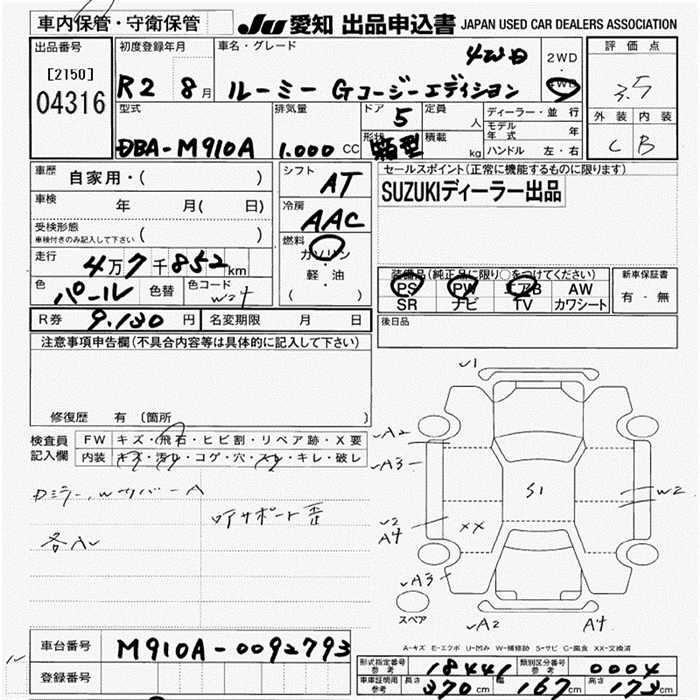 車内保管・守衛保管
JU 愛知 出品申込書 JAPAN USED CAR DEALERS ASSOCIATION
出品番号
[2150]
04316
初度登録年月
R2 8月
車名・グレード
4WD
ルーミー Gコージーエディション
2WD
・
4WD
評価点
3.5
外装 内装
C B
型式
DBA-M910A
排気量
1.000 CC
ドア 5
形状 箱型
定員 人
積載 kg
ディーラー・並行
モデル年式 年
ハンドル 左・右
車歴 自家用・( )
車検 年 月( 日)
受検形態
車検付きのみ記入して下さい ( )
走行 4万7千852km
色 パール 色替 色コード W24
シフト AT
冷房 AAC
燃料
ガソリン
・
軽・油
( )
セールスポイント(正常に機能するものに限ります)
SUZUKIディーラー出品
装備品(純正品に限り○をつけてください)
PS PW エアB AW
SR ナビ TV カワシート
新車保証書
有・無
R券 9.130 円 名変期限 月 日
後日品
注意事項申告欄(不具合内容等は具体的に記入して下さい)
修復歴 有(箇所 )
検査員記入欄
FW キズ・飛石・ヒビ割・リペア跡・X要
内装 キズ・汚れ・コゲ・穴・スレ・キレ・破レ
サポート歪
√1
√A2
√A3
√2
A4
XX
S1
W2
√A3
√A2
A4
スペア
A-キズ E-エクボ U-凹み W-補修跡 S-サビ C-腐食 XX-交換済
車台番号 M910A-0092793
登録番号
型式指定番号 参考 18441 類別区分番号 参考 0004
車庫証明用 参考 長さ 370cm 幅 167cm 高さ 173cm